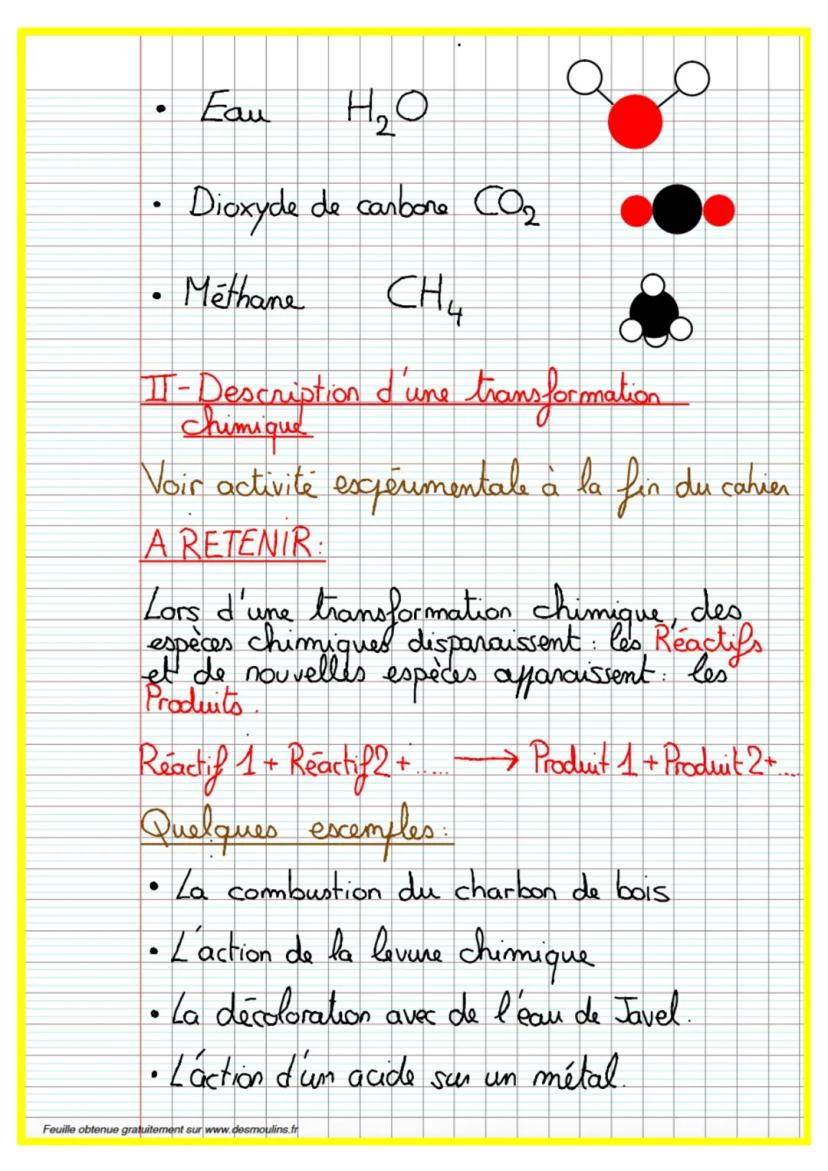 • Eau H₂O
• Dioxyde de carbone CO₂
• Méthane CH₄
II - Description d'une transformation
chimique
Voir activité expérimentale à la fin du cahier
A RETENIR:
Lors d'une transformation chimique, des
espèces chimiques disparaissent : les Réactifs
et de nouvelles espèces apparaissent : les
Produits.
Réactif 1 + Réactif 2 + ..... → Produit 1 + Produit 2 + ....
Quelques exemples :
• La combustion du charbon de bois
• L'action de la levure chimique
• La décoloration avec de l'eau de Javel.
• L'action d'un acide sur un métal.
Feuille obtenue gratuitement sur www.desmoulins.fr